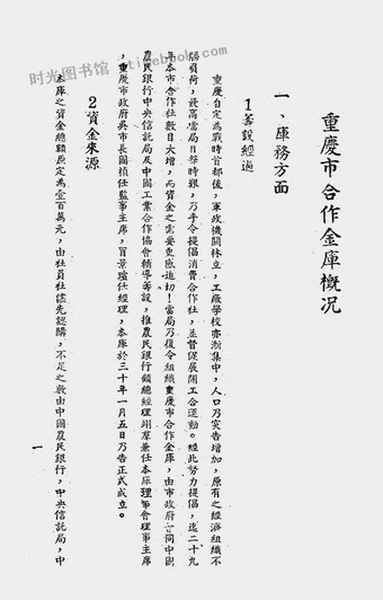 时光图书馆 timebook.com
重慶市合作金庫概況
一、庫務方面
1籌設經過
重慶自定為戰時首都後，軍政機關林立，工廠學校亦漸集中，人口乃突告增加，原有之經濟組織不
勝負荷，最高當局目擊時艱，乃手令提倡消費合作社，並督促展開工合運動。經此努力提倡，迄二十九
年本市合作社數目大增，而資金之需要更感迫切！當局乃復令組織重慶市合作金庫，由市政府會同中國
農民銀行中央信託局及中國工業合作協會輔導籌設，推農民銀行顧總經理翊羣兼任本庫理事會理事主席
，重慶市政府吳市長國楨任監事主席，寗景瑞任經理，本庫於三十年一月五日乃告正式成立。
2資金來源
本庫之資金總額原定為壹百萬元，由社員社儘先認購，不足之數由中國農民銀行，中央信託局，中
一